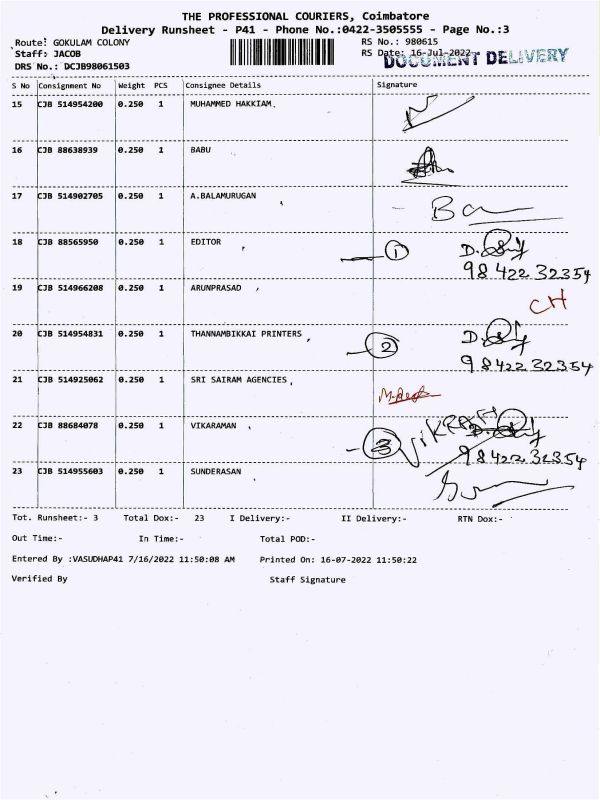 THE PROFESSIONAL COURIERS, Coimbatore
Delivery Runsheet - P41 - Phone No.:0422-3505555 - Page No.:3
Route: GOKULAM COLONY RS No.: 980615
Staff: JACOB RS Date: 16-Jul-2022
DOCUMENT DELIVERY
DRS No.: DCJB98061503
S No Consignment No Weight PCS Consignee Details Signature
15 CJB 514954200 0.250 1 MUHAMMED HAKKIAM.
16 CJB 88638939 0.250 1 BABU
17 CJB 514902705 0.250 1 A.BALAMURUGAN
18 CJB 88565950 0.250 1 EDITOR 1
98422 32354
19 CJB 514966208 0.250 1 ARUNPRASAD
CH
20 CJB 514954831 0.250 1 THANNAMBIKKAI PRINTERS 2
98422 32354
21 CJB 514925062 0.250 1 SRI SAIRAM AGENCIES
22 CJB 88684078 0.250 1 VIKARAMAN 3
98422 32354
23 CJB 514955603 0.250 1 SUNDERASAN
Tot. Runsheet:- 3 Total Dox:- 23 I Delivery:- II Delivery:- RTN Dox:-
Out Time:- In Time:- Total POD:-
Entered By :VASUDHAP41 7/16/2022 11:50:08 AM Printed On: 16-07-2022 11:50:22
Verified By Staff Signature